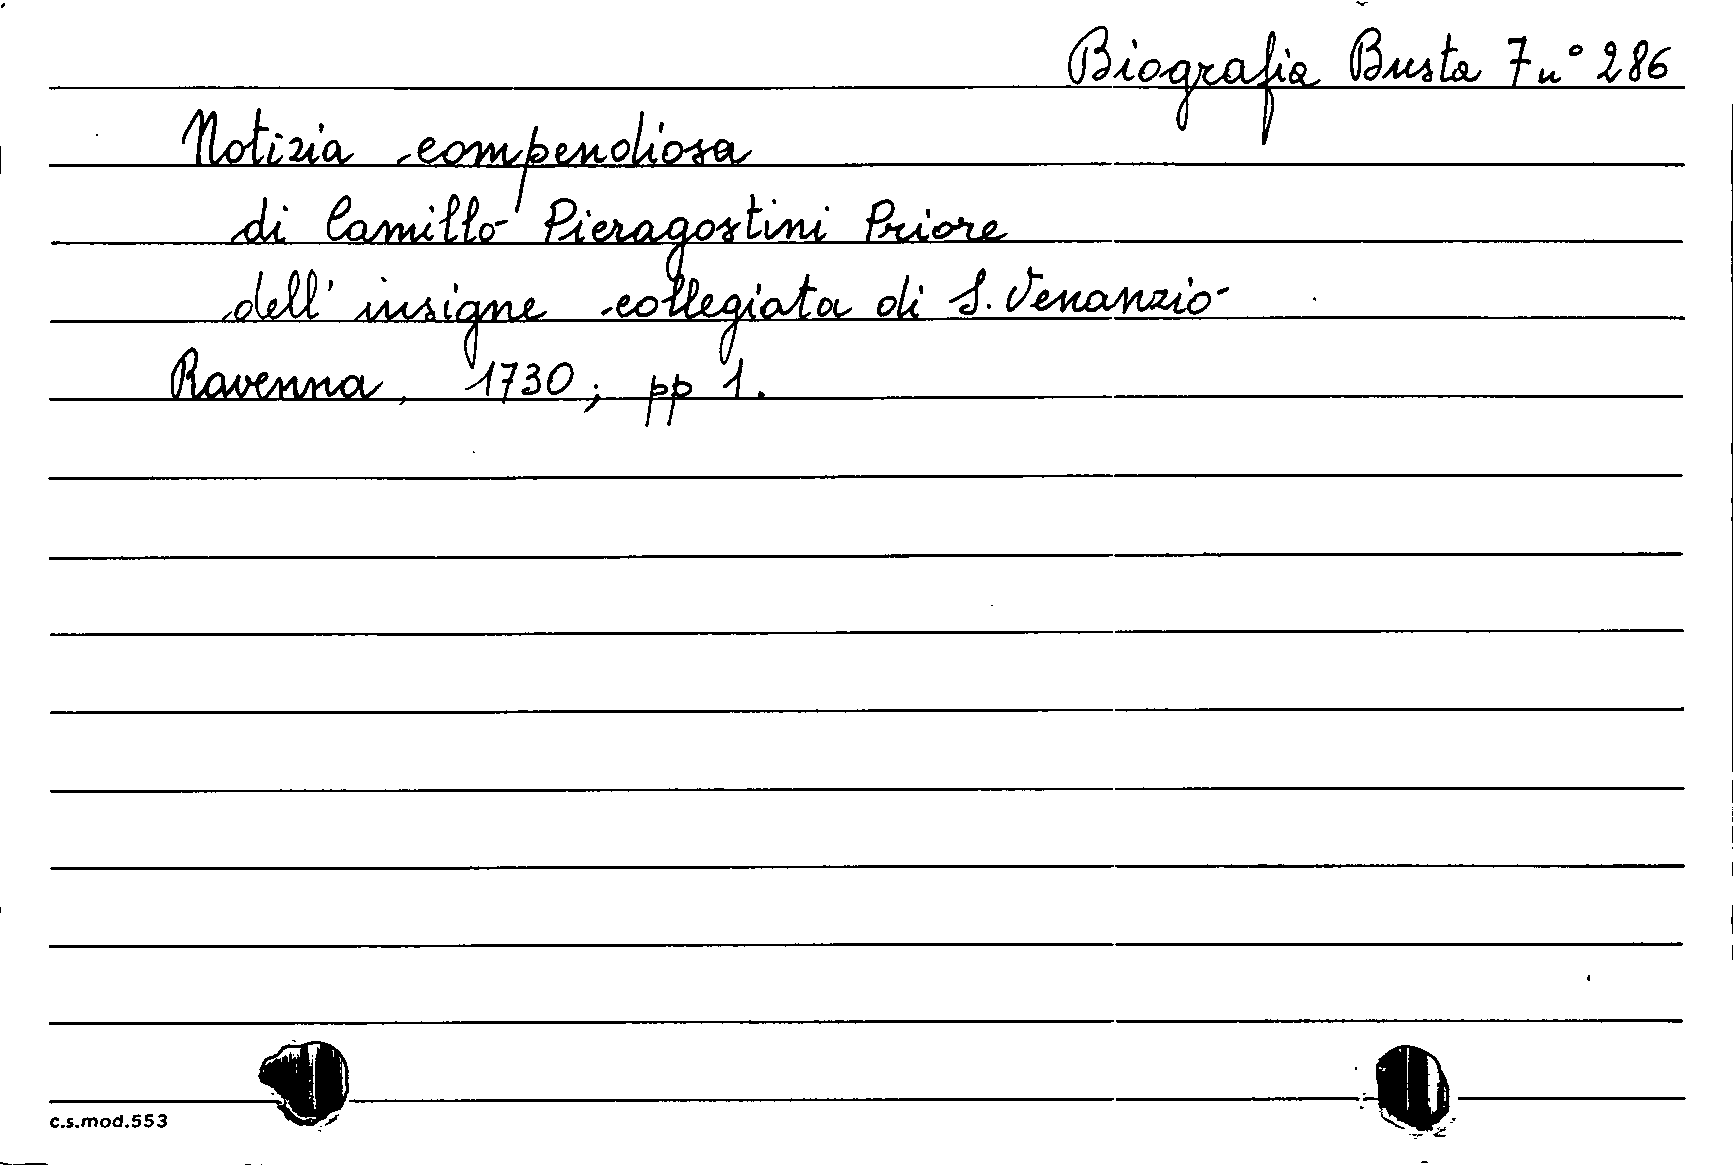 Biografia Busta 7 n° 286
Notizia compendiosa
di Camillo Pieragostini Priore
dell' insigne collegiata di S. Venanzio
Ravenna, 1730; pp 1.
c.s.mod.553